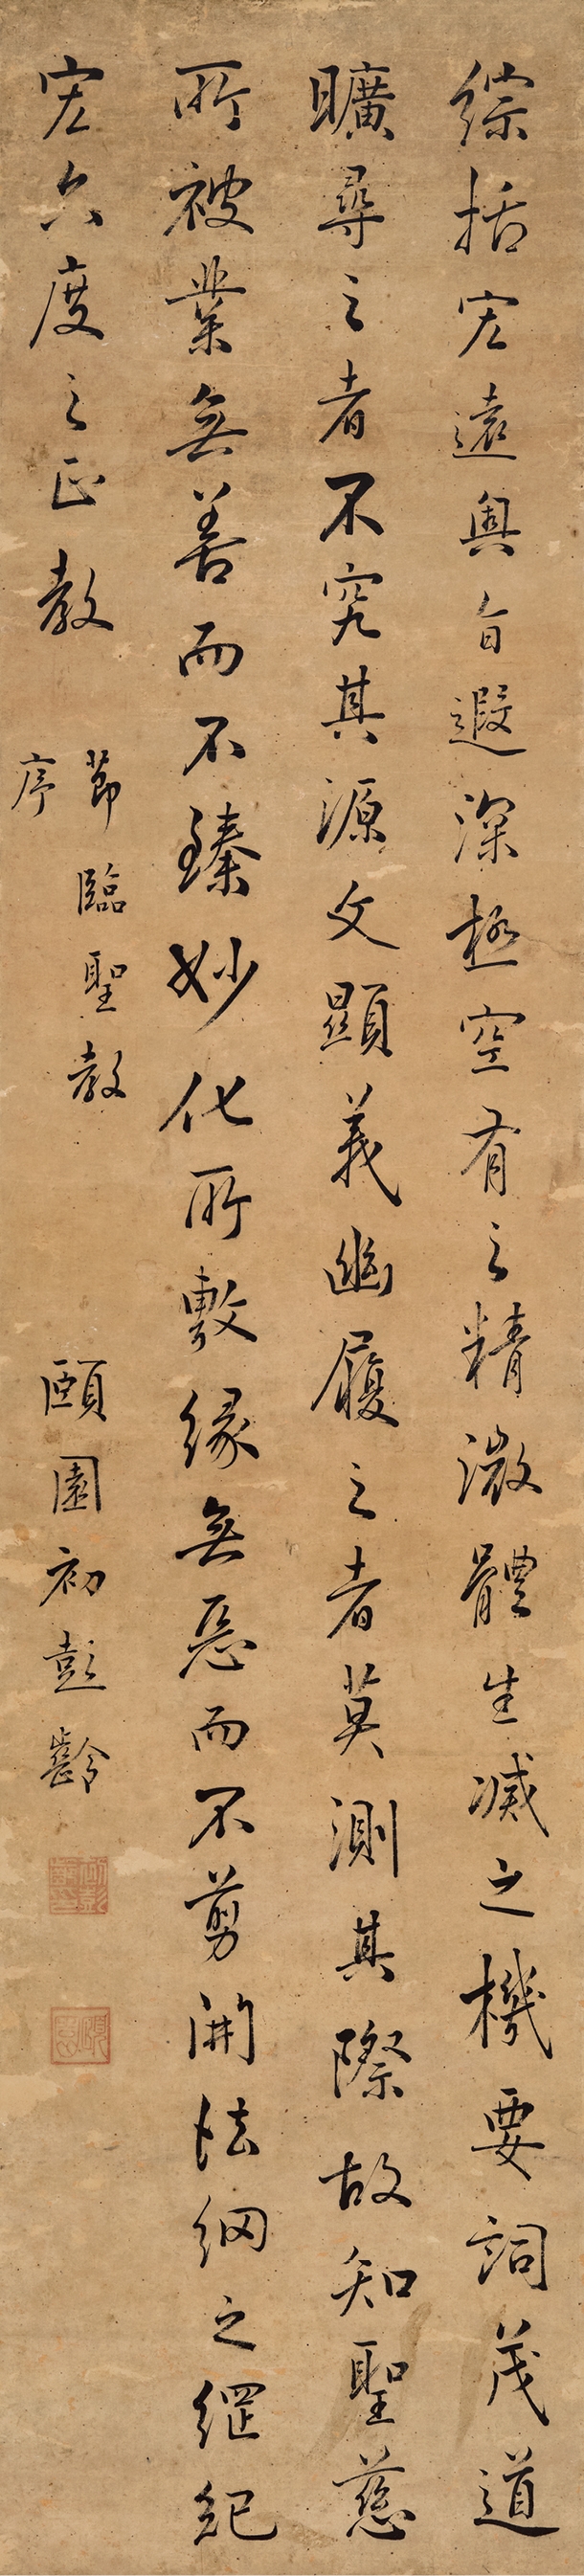 綜括宏遠奧旨遐深極空有之精微體生滅之機要詞茂道
曠尋之者不究其源文顯義幽履之者莫測其際故知聖慈
所被業無善而不臻妙化所敷緣無惡而不剪開法網之綱紀
宏六度之正教
節臨聖教
序
頤園初彭齡